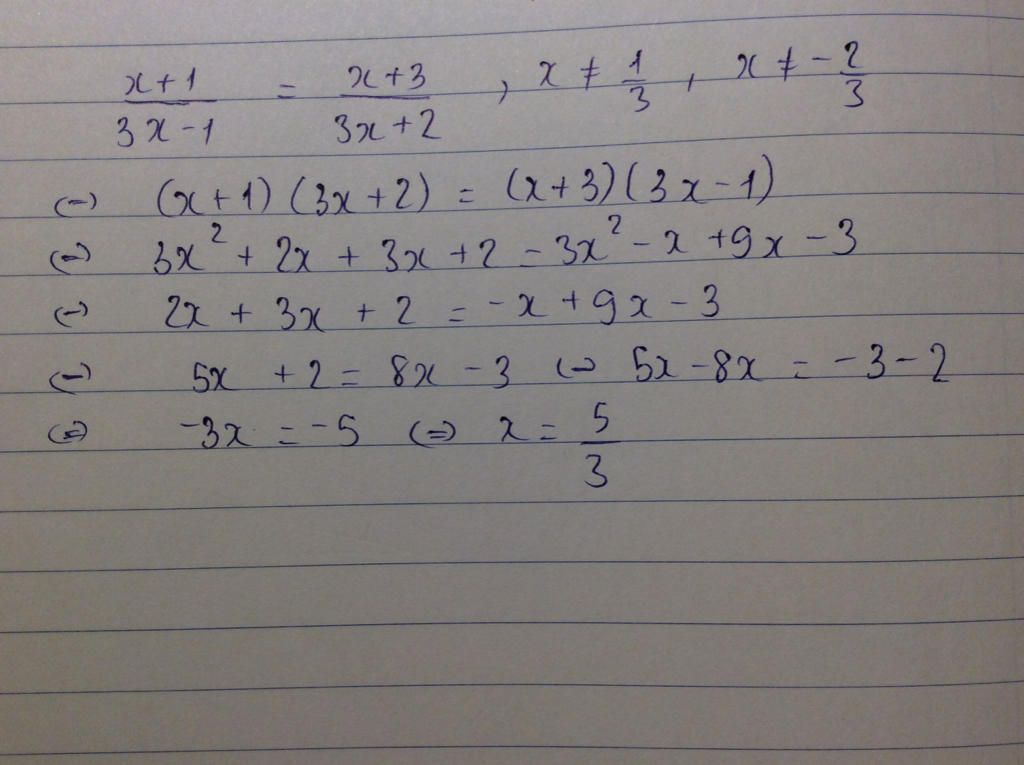 x+1/3x-1 = x+3/3x+2 , x ≠ 1/3 , x ≠ -2/3
⇔ (x+1)(3x+2) = (x+3)(3x-1)
⇔ 3x² + 2x + 3x + 2 = 3x² - x + 9x - 3
⇔ 2x + 3x + 2 = -x + 9x - 3
⇔ 5x + 2 = 8x - 3 ⇔ 5x - 8x = -3 - 2
⇔ -3x = -5 ⇔ x = 5/3